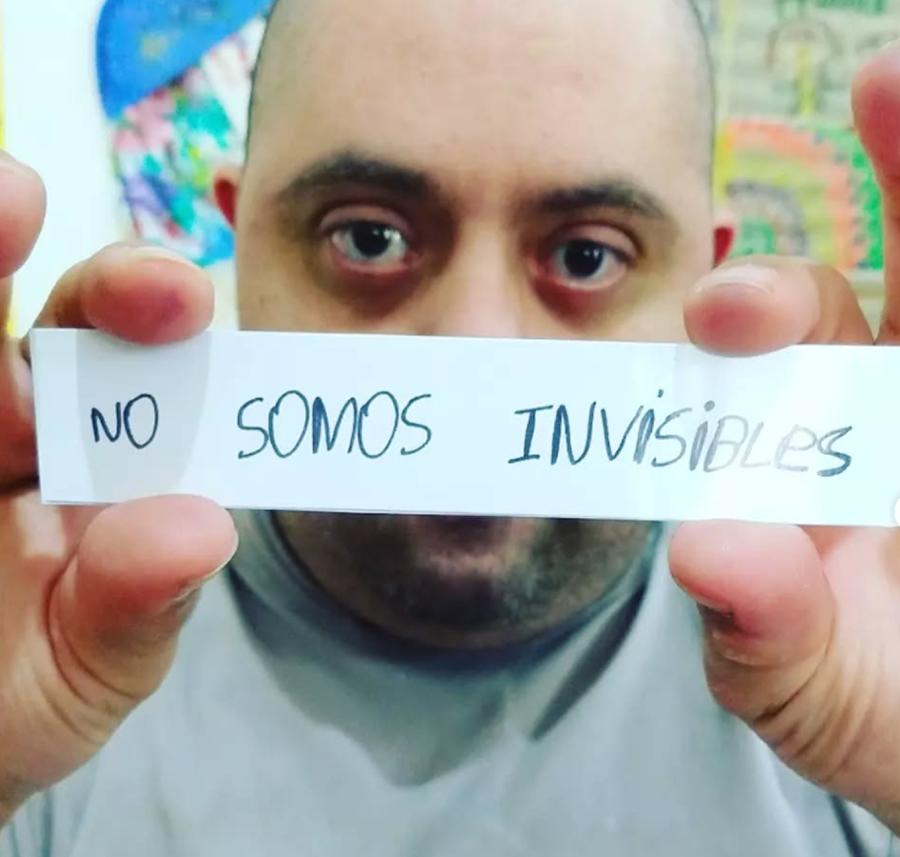 NO SOMOS INViSiBLeS